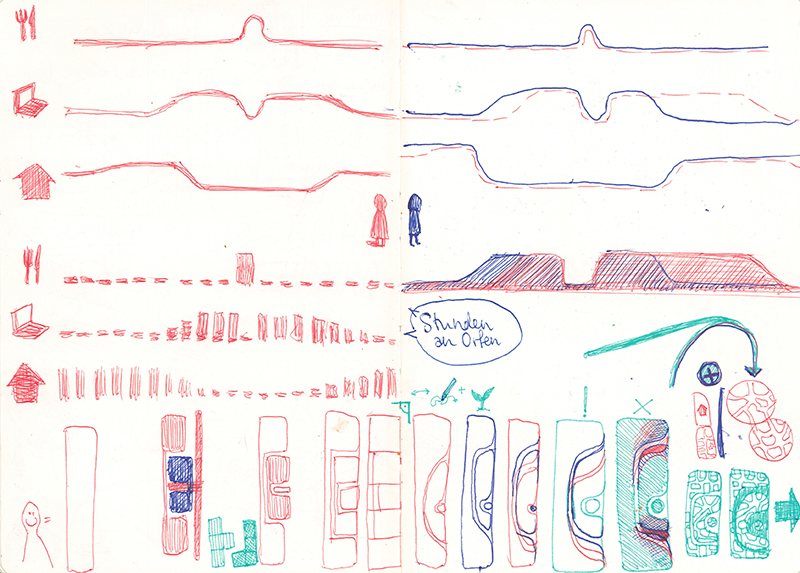 Stunden
an Orten